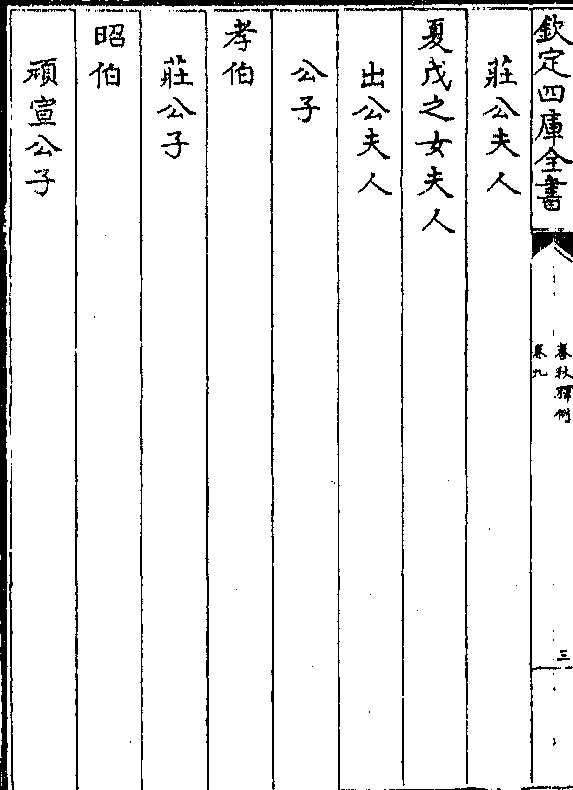 欽定四庫全書
春秋釋例
卷九
三
莊公夫人
夏戊之女夫人
出公夫人
公子
孝伯
莊公子
昭伯
頑宣公子